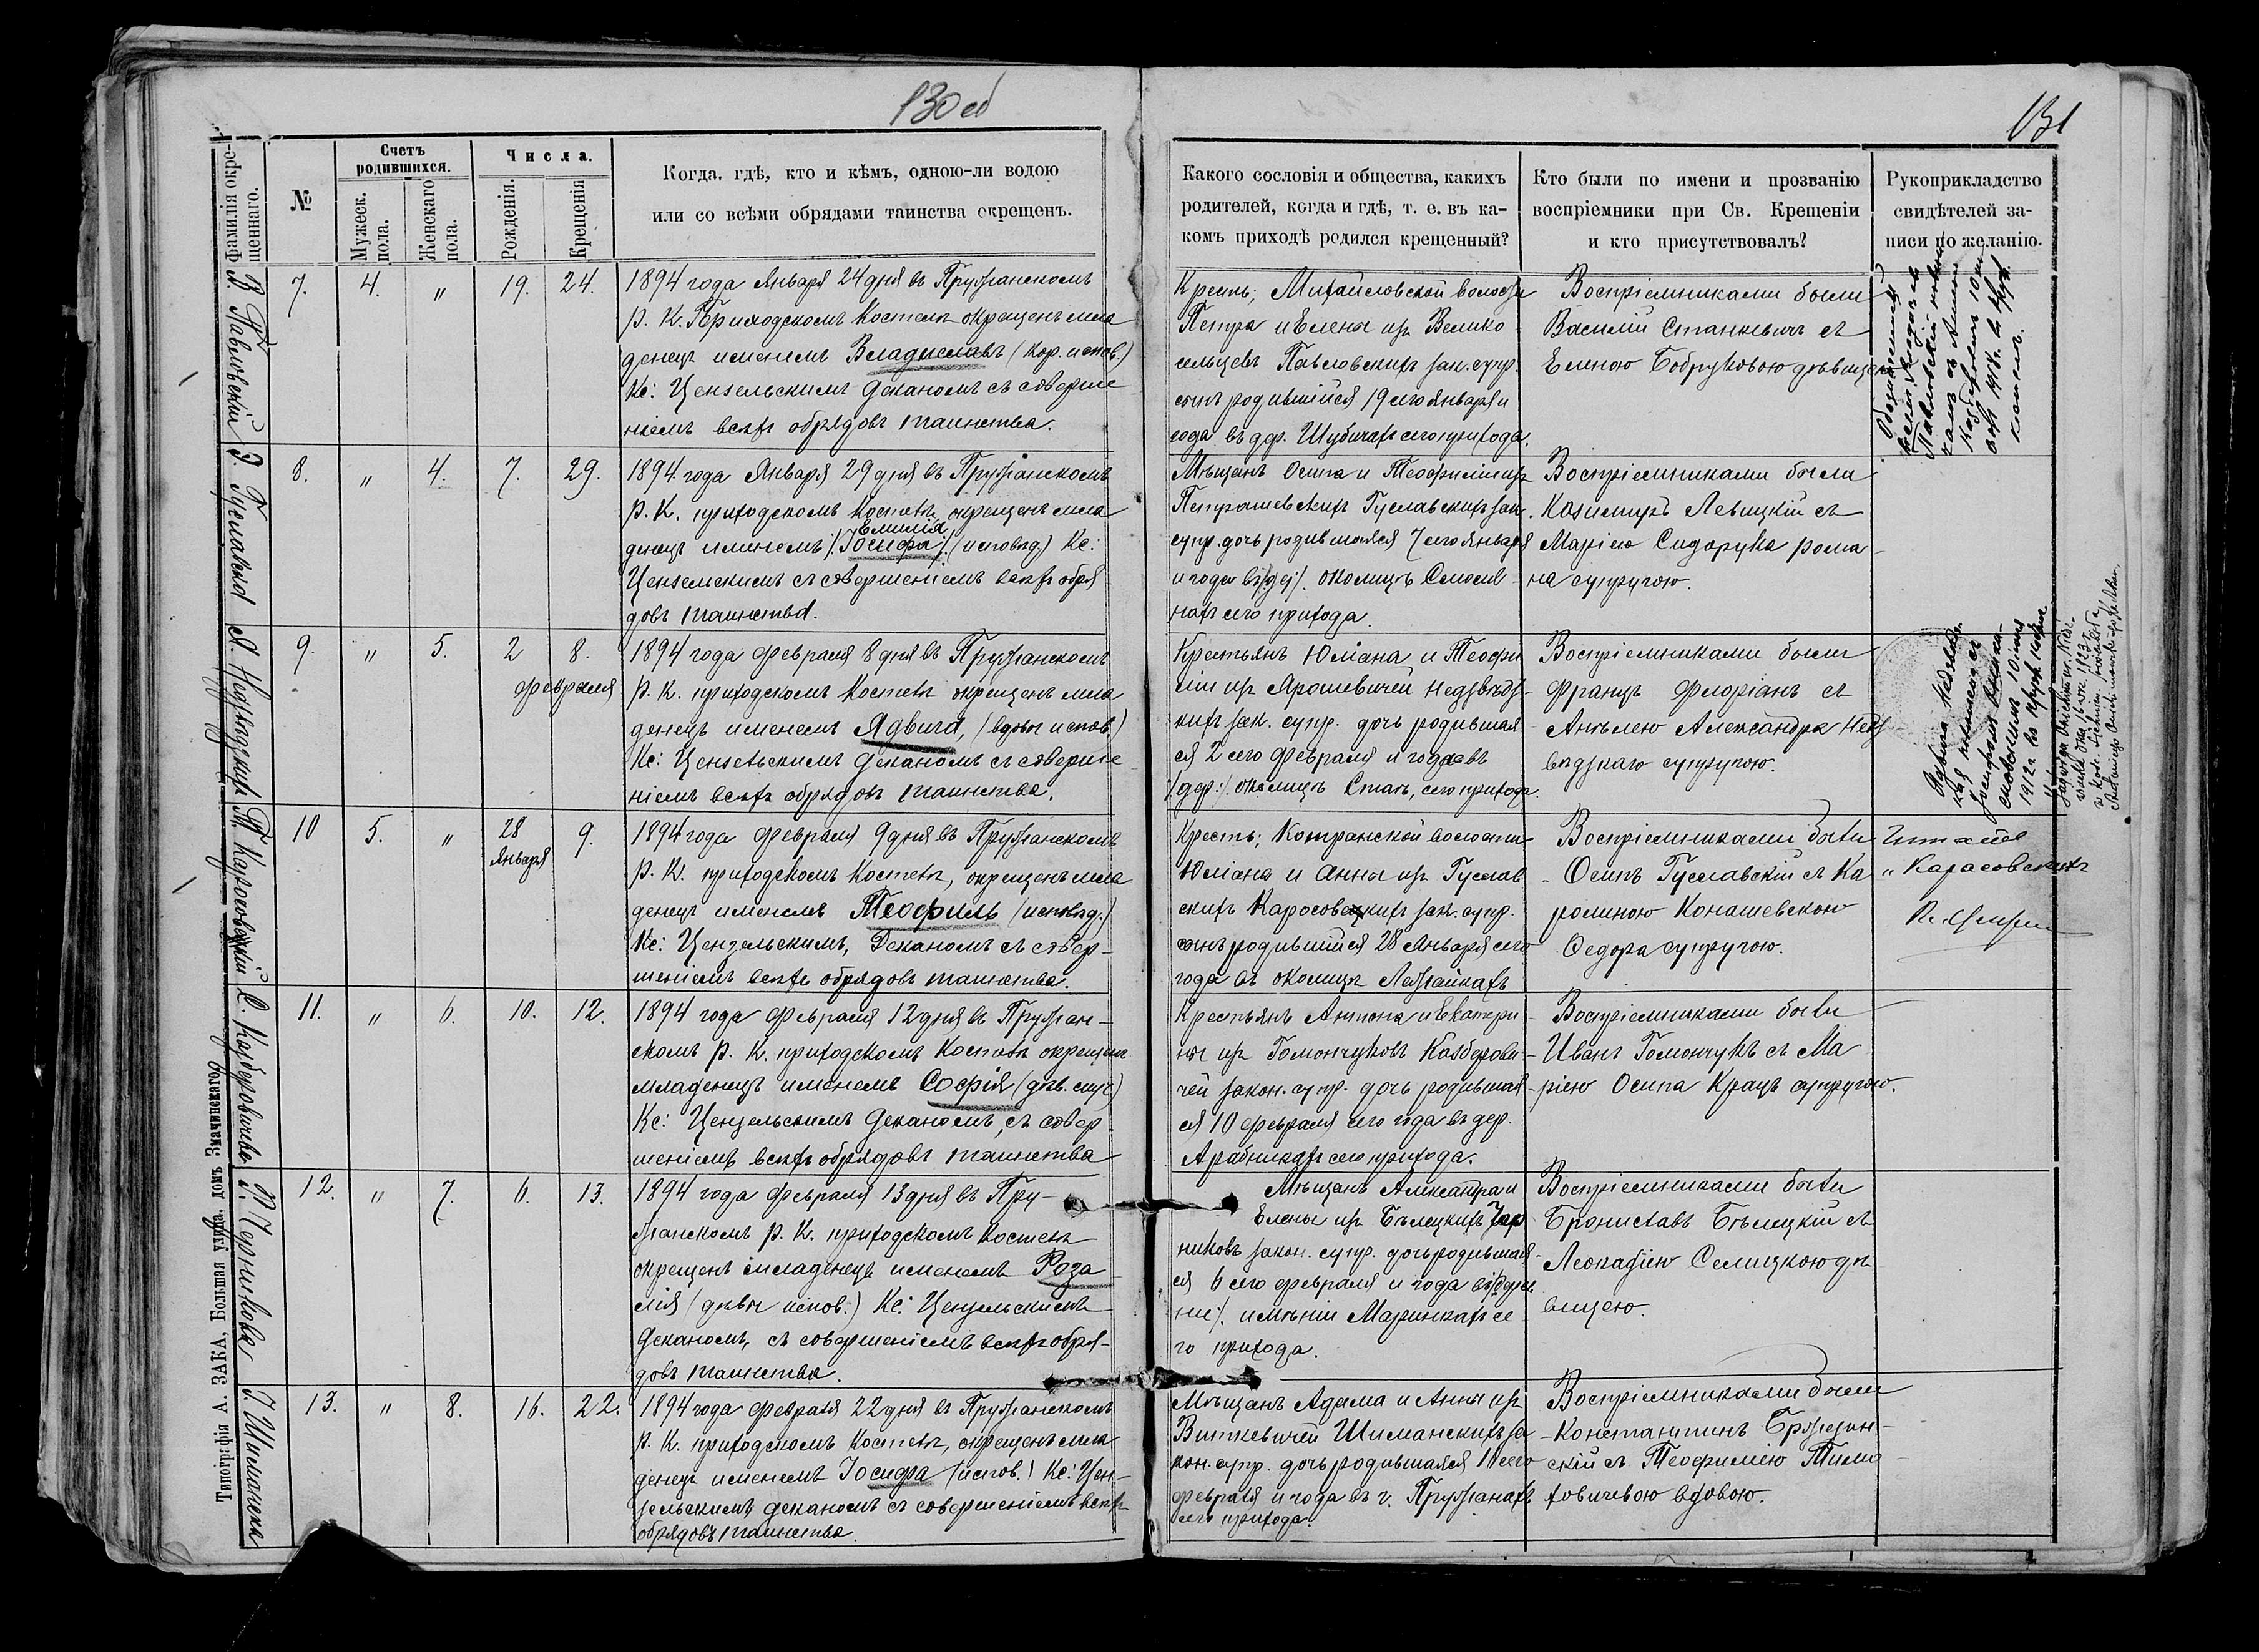 130 об
131
Фамилія окре-
щеннаго.
№
Счетъ
родившихся.
Мужеск.
пола.
Женскаго
пола.
Числа.
Рожденія.
Крещенія
Когда, гдѣ, кто и кѣмъ, одною-ли водою
или со всѣми обрядами таинства окрещенъ.
Какого сословія и общества, какихъ
родителей, когда и гдѣ, т. е. въ ка-
комъ приходѣ родился крещенный?
Кто были по имени и прозванію
воспріемники при Св. Крещеніи
и кто присутствовалъ?
Рукоприкладство
свидѣтелей за-
писи по желанію.
В. Павловскій
7. 4. " 19. 24.
1894 года Января 24 дня въ Пружанскомъ
Р. К. Приходскомъ Костелѣ окрещенъ мла
денецъ именемъ Владиславъ
Кс: Цензельскимъ Деканомъ съ соверше
ніемъ всѣхъ обрядовъ таинства.
Крестъ; Михайловской волости
Петра и Елены изъ Велико
сельцевъ Павловскихъ зак. супр.
сынъ родившійся 19 сего Января и
года въ дер. Шубичахъ сего прихода.
Воспріемниками были
Василій Станкевичъ съ
Еленою Бобруковою дѣвицею
8. " 4. 7. 29.
1894 года Января 29 дня въ Пружанскомъ
Р. К. приходскомъ Костелѣ окрещенъ мла
Емилія
денецъ именемъ /:Іосифа:/ (исповѣд.) Кс:
Цензельскимъ съ совершеніемъ всѣхъ обря
довъ таинства.
Мѣщанъ Осипа и Теофиліи изъ
Петрашевскихъ Гуславскихъ зак.
супр. дочь родившаяся 7 сего Января
и года въ /:дер:/. околицѣ Смоля-
нахъ сего прихода.
Воспріемниками были
Казимиръ Левицкій съ
Маріею Сидорука рома-
на супругою.
9. " 5. 2 8.
Февраля
1894 года Февраля 8 дня въ Пружанскомъ
Р. К. приходскомъ Костелѣ окрещенъ мла
денецъ именемъ Ядвига,
Кс: Цензельскимъ Деканомъ съ соверше
ніемъ всѣхъ обрядовъ таинства.
Крестьянъ Юліана и Теофи
ліи изъ Ярошевичей Недзвѣдз-
кихъ зак. супр. дочь родившая
ся 2 сего Февраля и года въ
/:дер:/. околицѣ Стаѣ, сего прихода.
Воспріемниками были
Францъ Флоріанъ съ
Анѣлею Александра Недз
вѣдзкаго супругою.
Т. Каросовскій
10 5. " 28 9.
Января
1894 года Февраля 9 дня въ Пружанскомъ
Р. К. приходскомъ Костелѣ, окрещенъ мла
денецъ именемъ Теофиль (исповѣд.)
Кс: Цензельскимъ, Деканомъ съ совер-
шеніемъ всѣхъ обрядовъ таинства.
Крестъ; Котранской волости
Юліана и Анны изъ Гуслав
скихъ Каросовскихъ зак. супр.
сынъ родившійся 28 Января сего
года въ околицѣ Лежайкахъ
Воспріемниками были
Осипъ Гуславскій съ Ка
ролиною Конашевскою
Федора супругою.
Читай
"Карасовскихъ
С. Казберовичева
11. " 6. 10. 12.
1894 года Февраля 12 дня въ Пружан-
скомъ Р. К. приходскомъ Костелѣ окрещенъ
младенецъ именемъ Софія
Кс: Цензельскимъ Деканомъ, съ совер
шеніемъ всѣхъ обрядовъ таинства
Крестьянъ Антона и Екатери
ны изъ Гомончуковъ Казберови-
чей закон. супр. дочь родившая
ся 10 февраля сего года въ дер.
Арабникахъ сего прихода.
Воспріемниками были
Иванъ Гомончукъ съ Ма
ріею Осипа Крацъ супругою.
Р. Черникова
12. " 7. 6. 13.
1894 года Февраля 13 дня въ Пру-
жанскомъ Р. К. приходскомъ Костелѣ
окрещенъ младенецъ именемъ Роза
лія (дѣвы испов.) Кс: Цензельскимъ
Деканомъ, съ совершеніемъ всѣхъ обря-
довъ таинства.
Мѣщанъ Александра и
Елены изъ Бѣлецкихъ Чер
никовъ закон. супр. дочь родившая
ся 6 сего февраля и года въ
имѣніи Маринкахъ се
го прихода.
Воспріемниками были
Брониславъ Бѣлецкій съ
Леокадіею Селицкою дѣ
вицею.
І. Шиманска
13. " 8. 16. 22.
1894 года Февраля 22 дня въ Пружанскомъ
Р. К. приходскомъ Костелѣ, окрещенъ мла
денецъ именемъ Іосифа (испов.) Кс: Цен-
зельскимъ деканомъ съ совершеніемъ всѣхъ
обрядовъ таинства.
Мѣщанъ Адама и Анны изъ
Виткевичей Шиманскихъ за
кон. супр. дочь родившаяся 16 сего
февраля и года въ г. Пружанахъ
сего прихода.
Воспріемниками были
Константинъ Бржезин-
скій съ Теофиліею Тимо
ховичевою вдовою.
Типографія А. ЗАКА, Большая улица, домъ Значинскаго